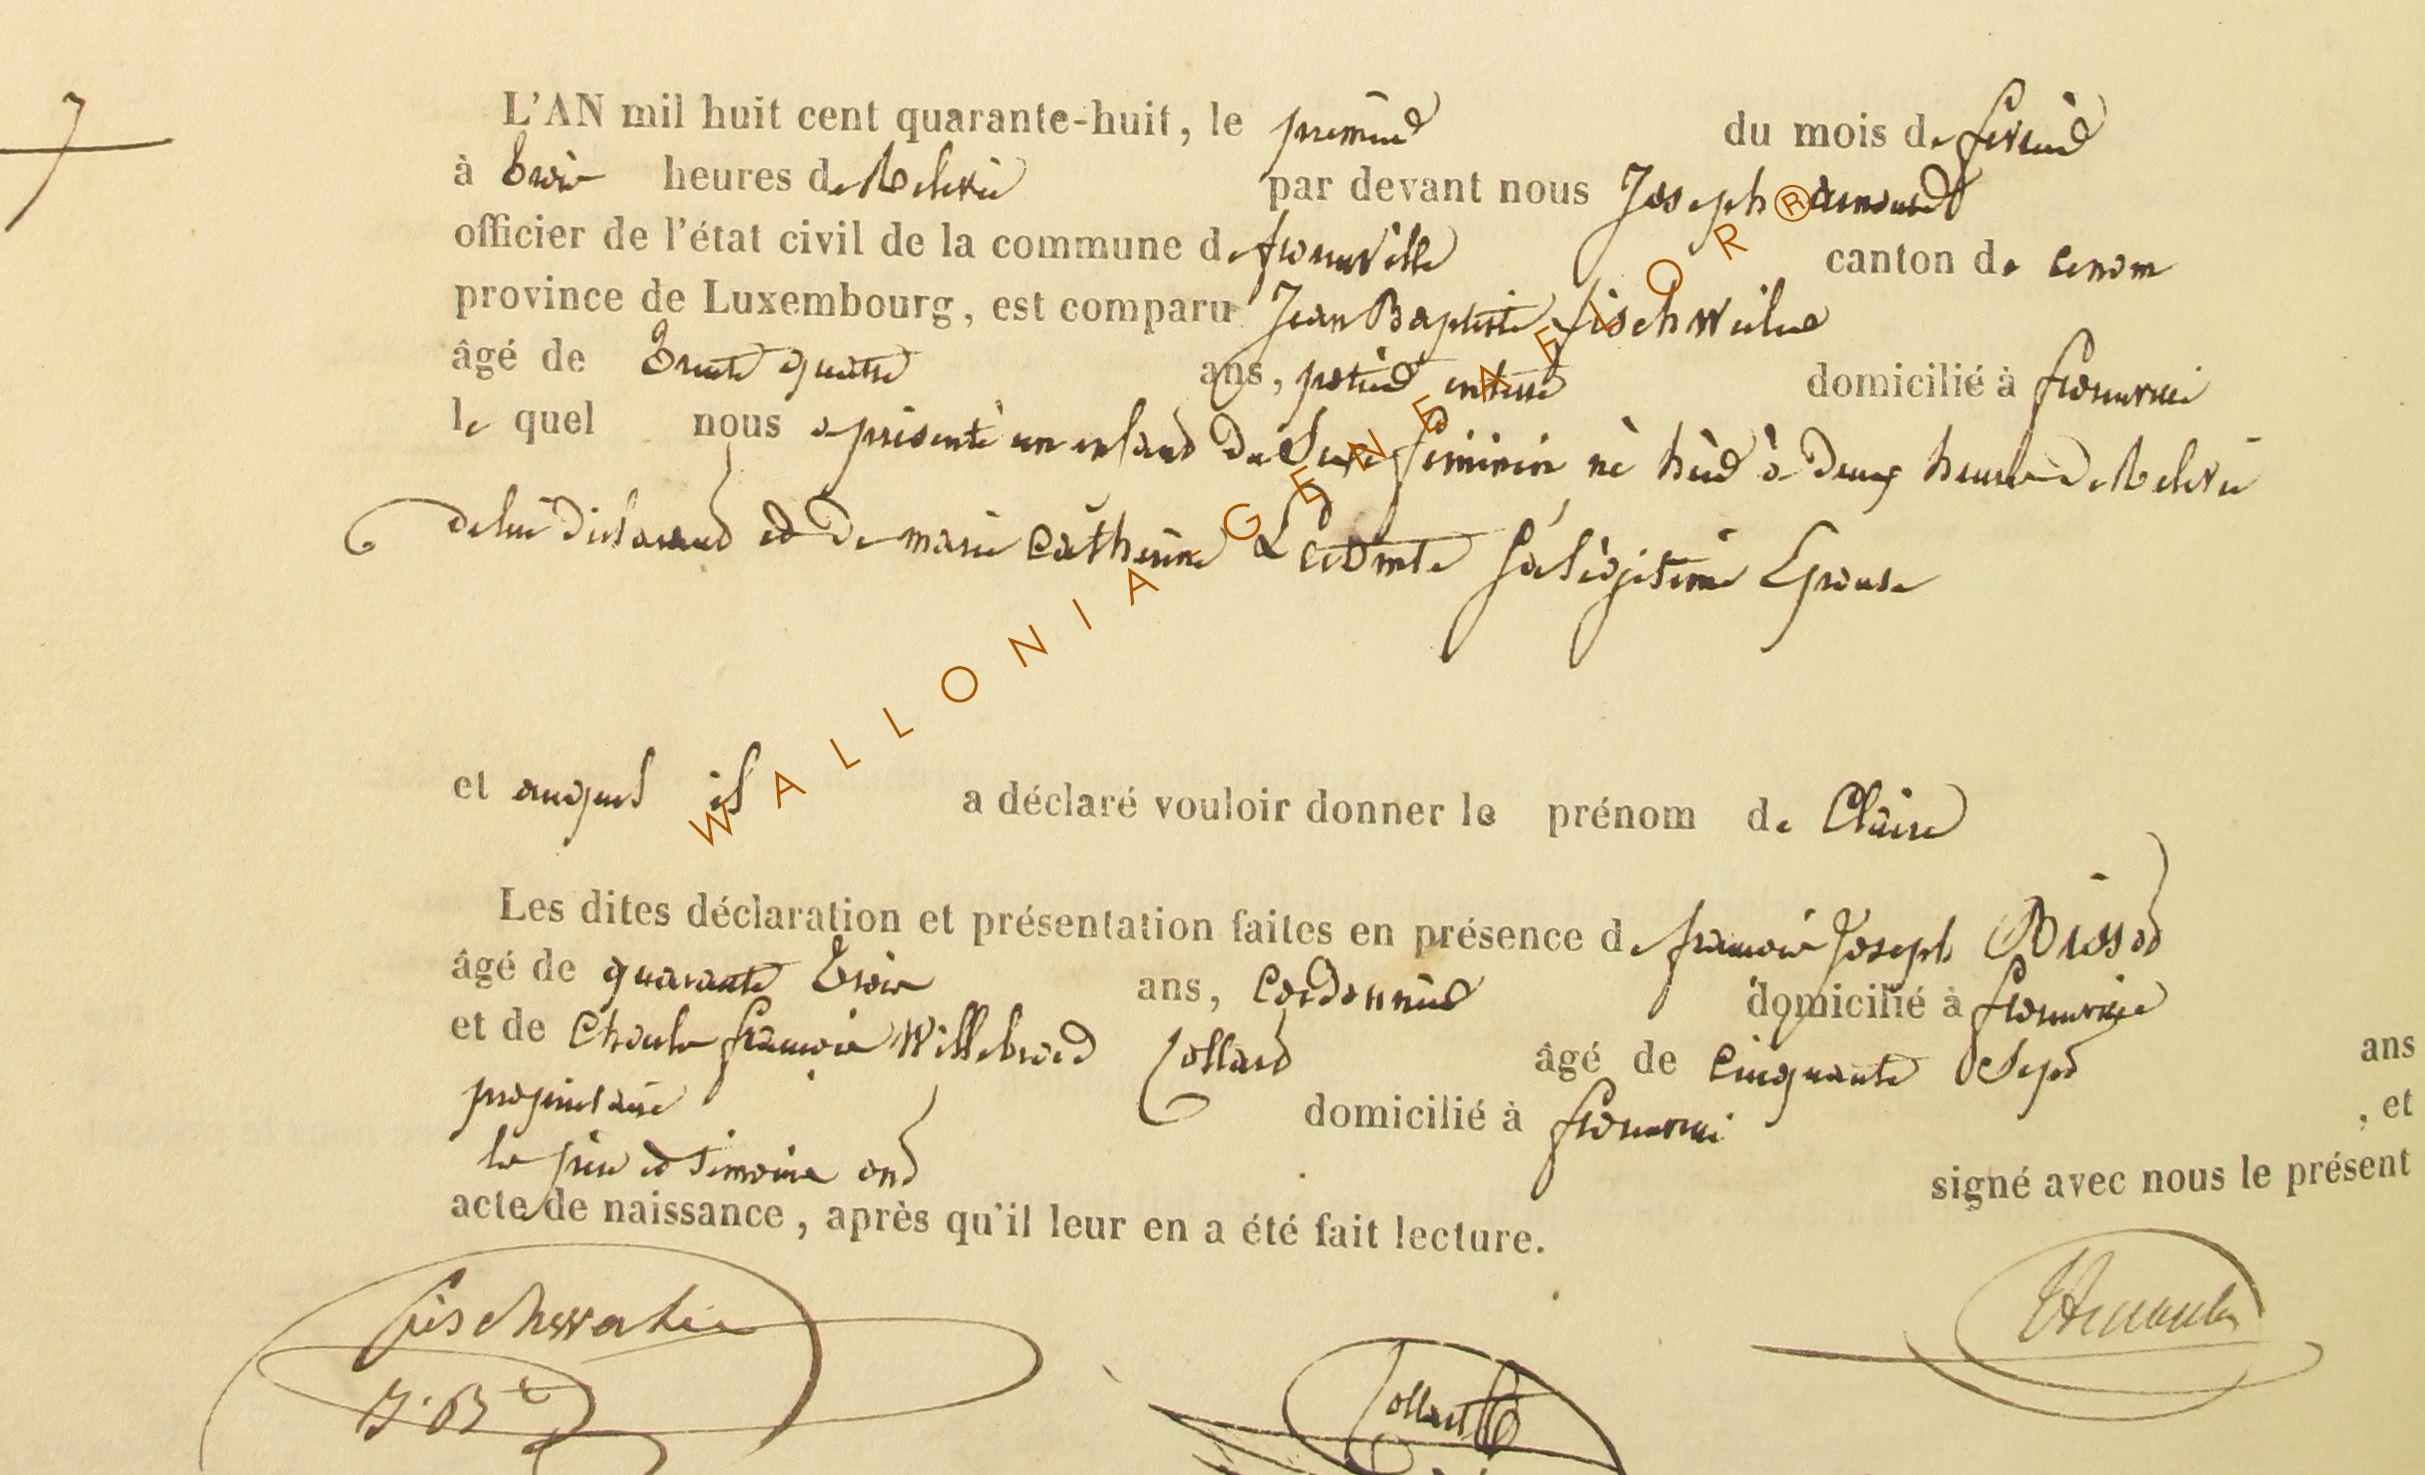 7
L'AN mil huit cent quarante-huit, le premier du mois de fevrier
à trois heures de Relevée par devant nous Joseph arnould
officier de l'état civil de la commune de fronville canton de
province de Luxembourg, est comparu Jean Baptiste fischweiler
âgé de trente quatre ans, potier domicilié à
le quel nous a présenté un enfant du Sexe féminin né hier à deux heures de Relevée
de lui déclarant et de marie Catherine Lecomte Sa légitime Epouse
et auquel il a déclaré vouloir donner le prénom de Claire
Les dites déclaration et présentation faites en présence de francois Joseph
âgé de quarante trois ans, Cordonnier domicilié à
et de Charles francois Willebrord Collard âgé de Cinquante Sept ans
propriétaire domicilié à , et
le père et témoins ont signé avec nous le présent
acte de naissance, après qu'il leur en a été fait lecture.
J. Bte
Collard
WALLONIA GENEAFLOR®